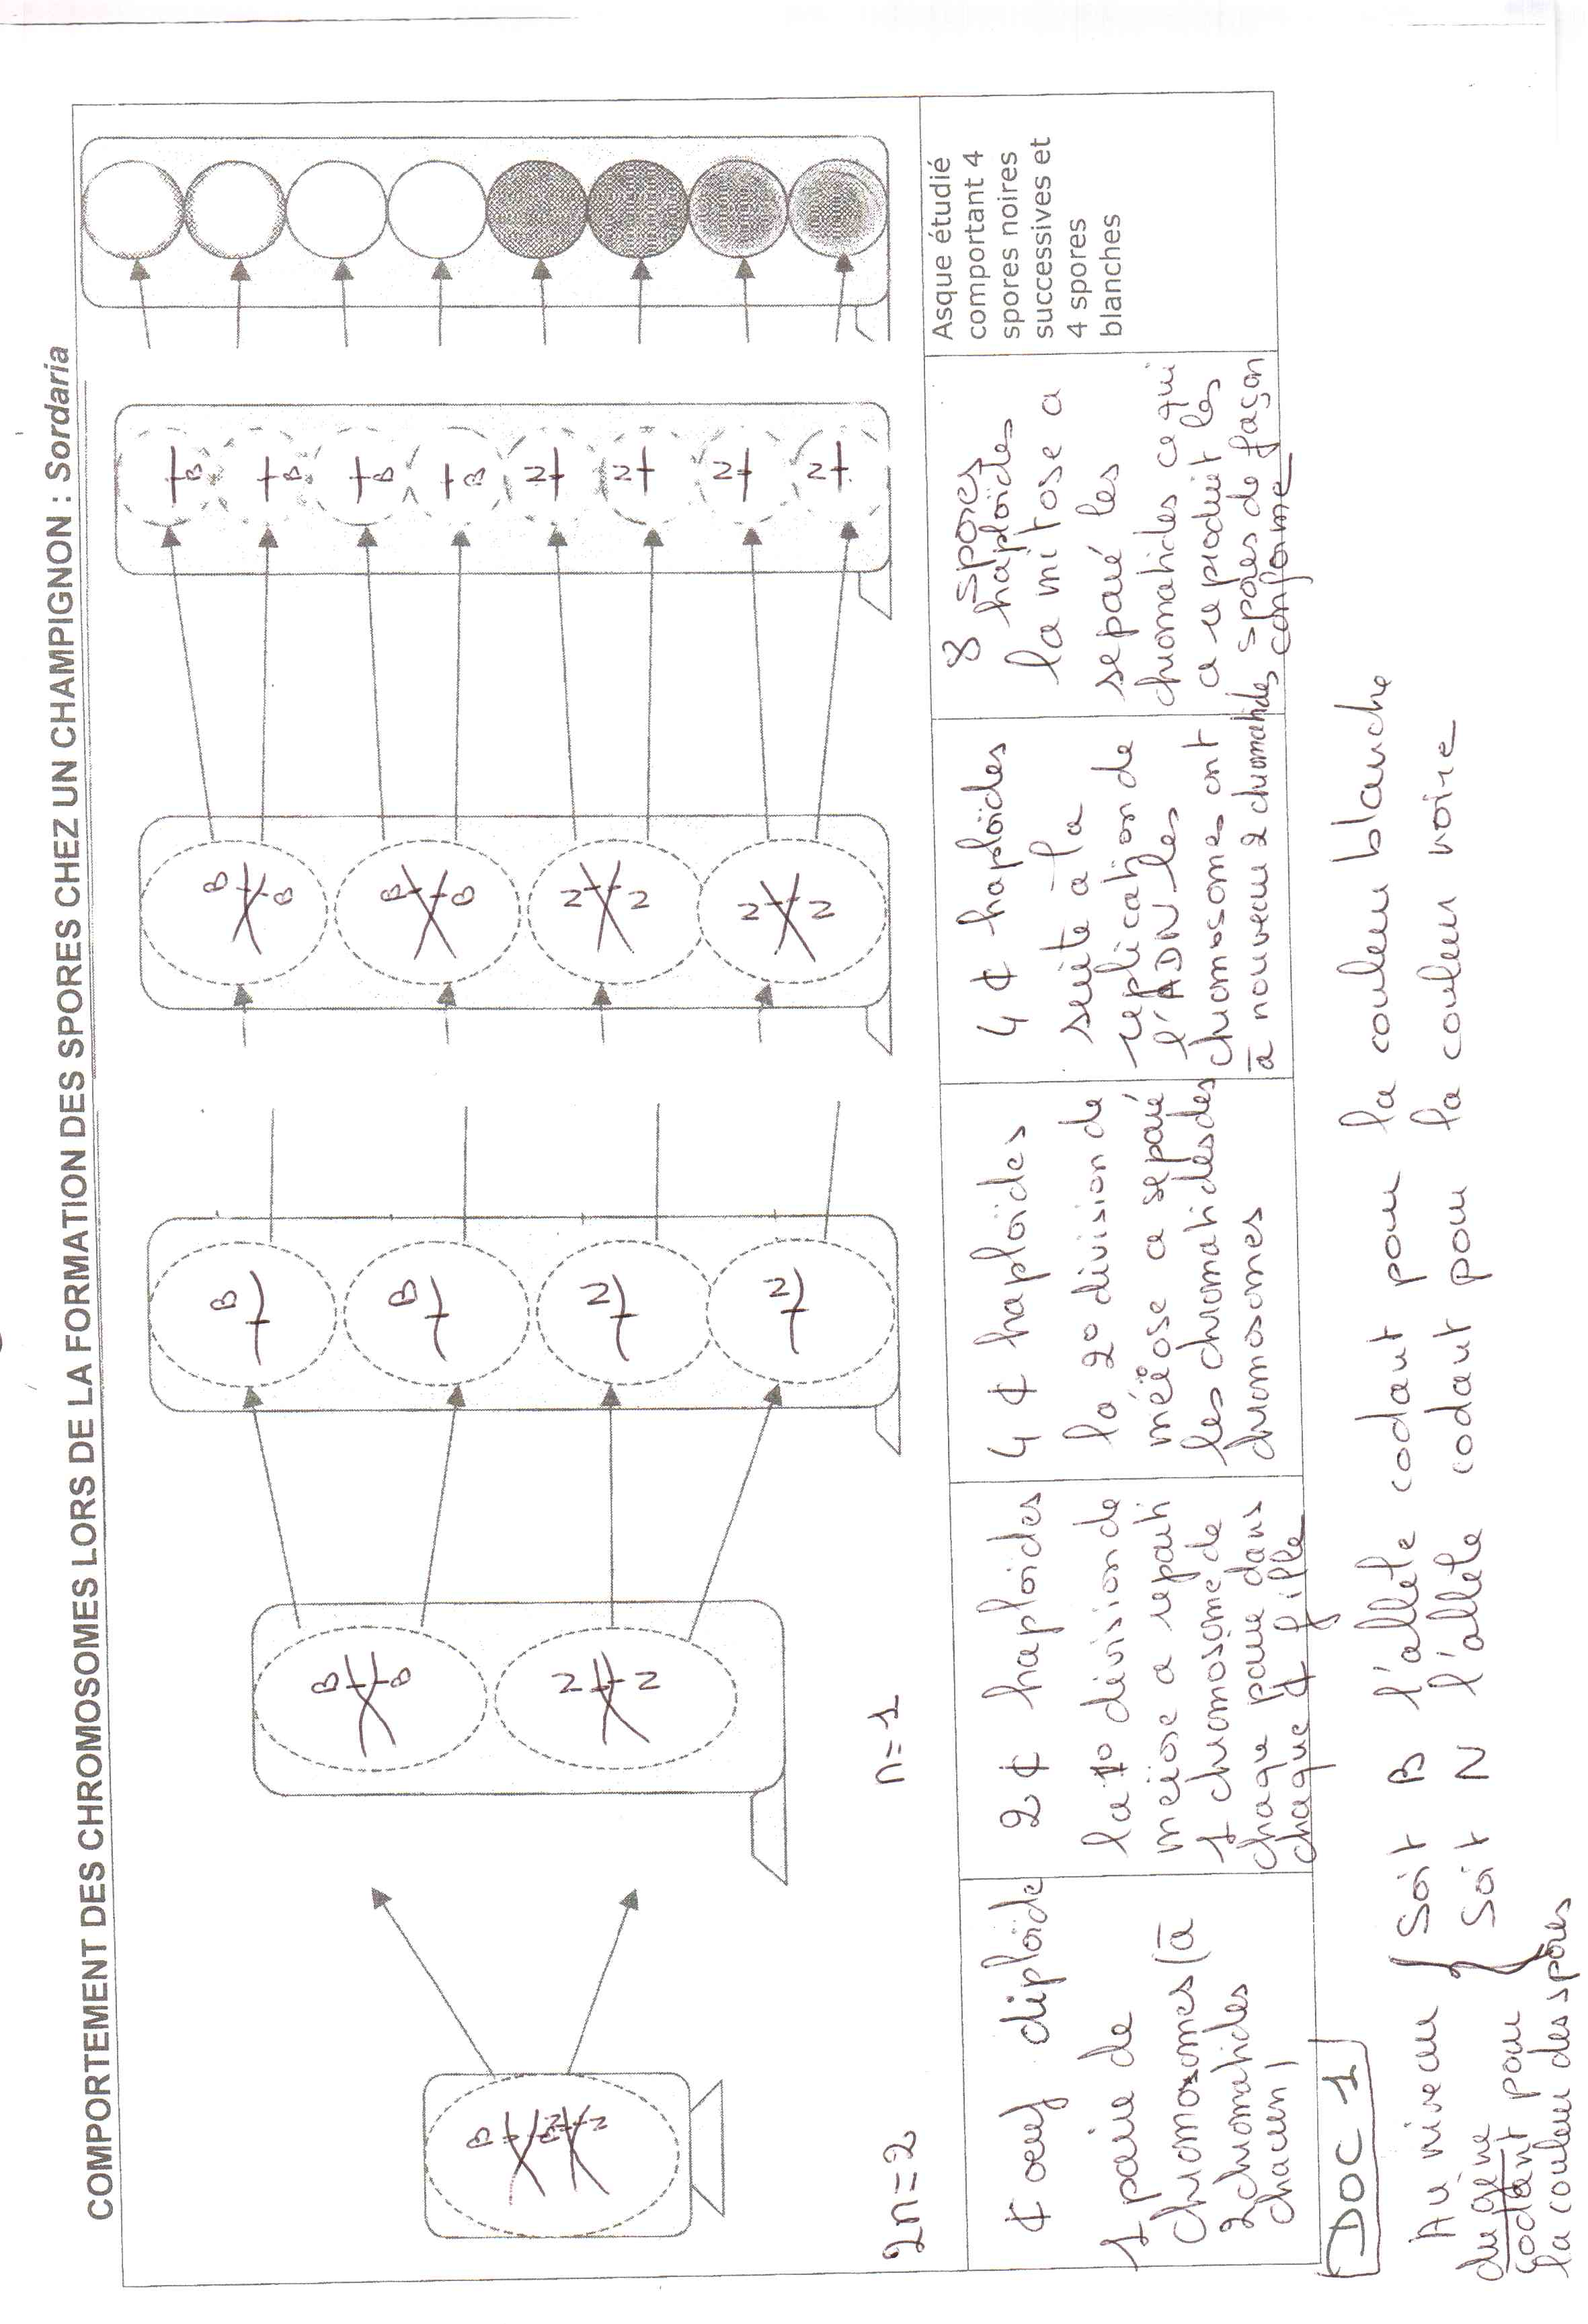 COMPORTEMENT DES CHROMOSOMES LORS DE LA FORMATION DES SPORES CHEZ UN CHAMPIGNON : Sordaria
B
B
N
N
B
B
N
N
B
B
N
N
B
B
B
B
N
N
N
N
B
B
B
B
N
N
N
N
2n=2
n=1
¢ oeuf diploïde
1 paire de
chromosomes (à
2 chromatides
chacun)
2 ¢ haploïdes
la 1° division de
méiose a reparti
1 chromosome de
chaque paire dans
chaque ¢ fille
4 ¢ haploïdes
la 2° division de
méiose a separé
les chromatides des
chromosomes
4 ¢ haploïdes
suite à la
replication de
l'ADN les
chromosomes ont
à nouveau 2 chromatides
8 spores
haploïdes
la mitose a
separé les
chromatides ce qui
a reproduit les
spores de façon
conforme
Asque étudié
comportant 4
spores noires
successives et
4 spores
blanches
DOC 1
Au niveau
du gène
codant pour
la couleur des spores
Soit B l'allèle codant pour la couleur blanche
Soit N l'allèle codant pour la couleur noire